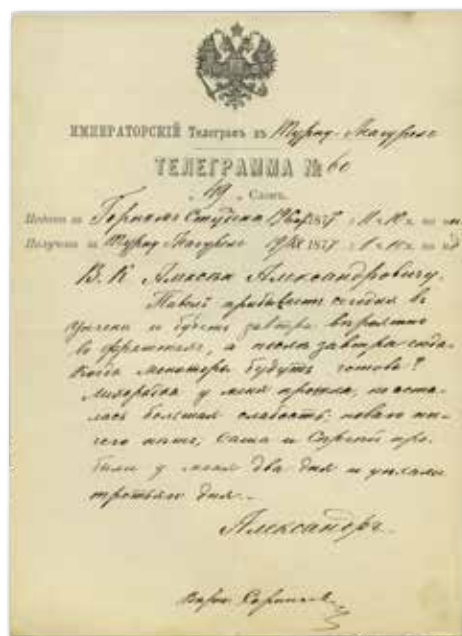 ИМПЕРАТОРСКІЙ Телеграфъ въ Турну-Магурели
ТЕЛЕГРАММА № 60
49 Словъ.
Подана въ Горномъ Студенѣ 187
Получена въ Турну Магурели 187
В. К. Алексѣю Александровичу.
Павелъ прибываетъ сегодня въ
Унгени и будетъ завтра вѣроятно
во Фратешти, а послѣ завтра сюда.
Когда мониторы будутъ готовы?
Лихорадка у меня прошла, но оста-
лась большая слабость, новаго ни-
чего нѣтъ, Саша и Сергѣй про-
были у меня два дня и уѣхали
третьяго дня.
Александръ.